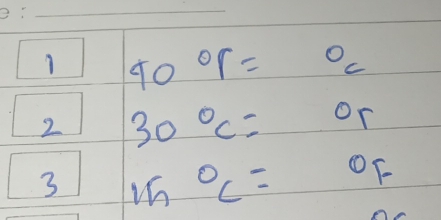 1 40 °F = °C
2 30 °C = °F
3 °C = °F